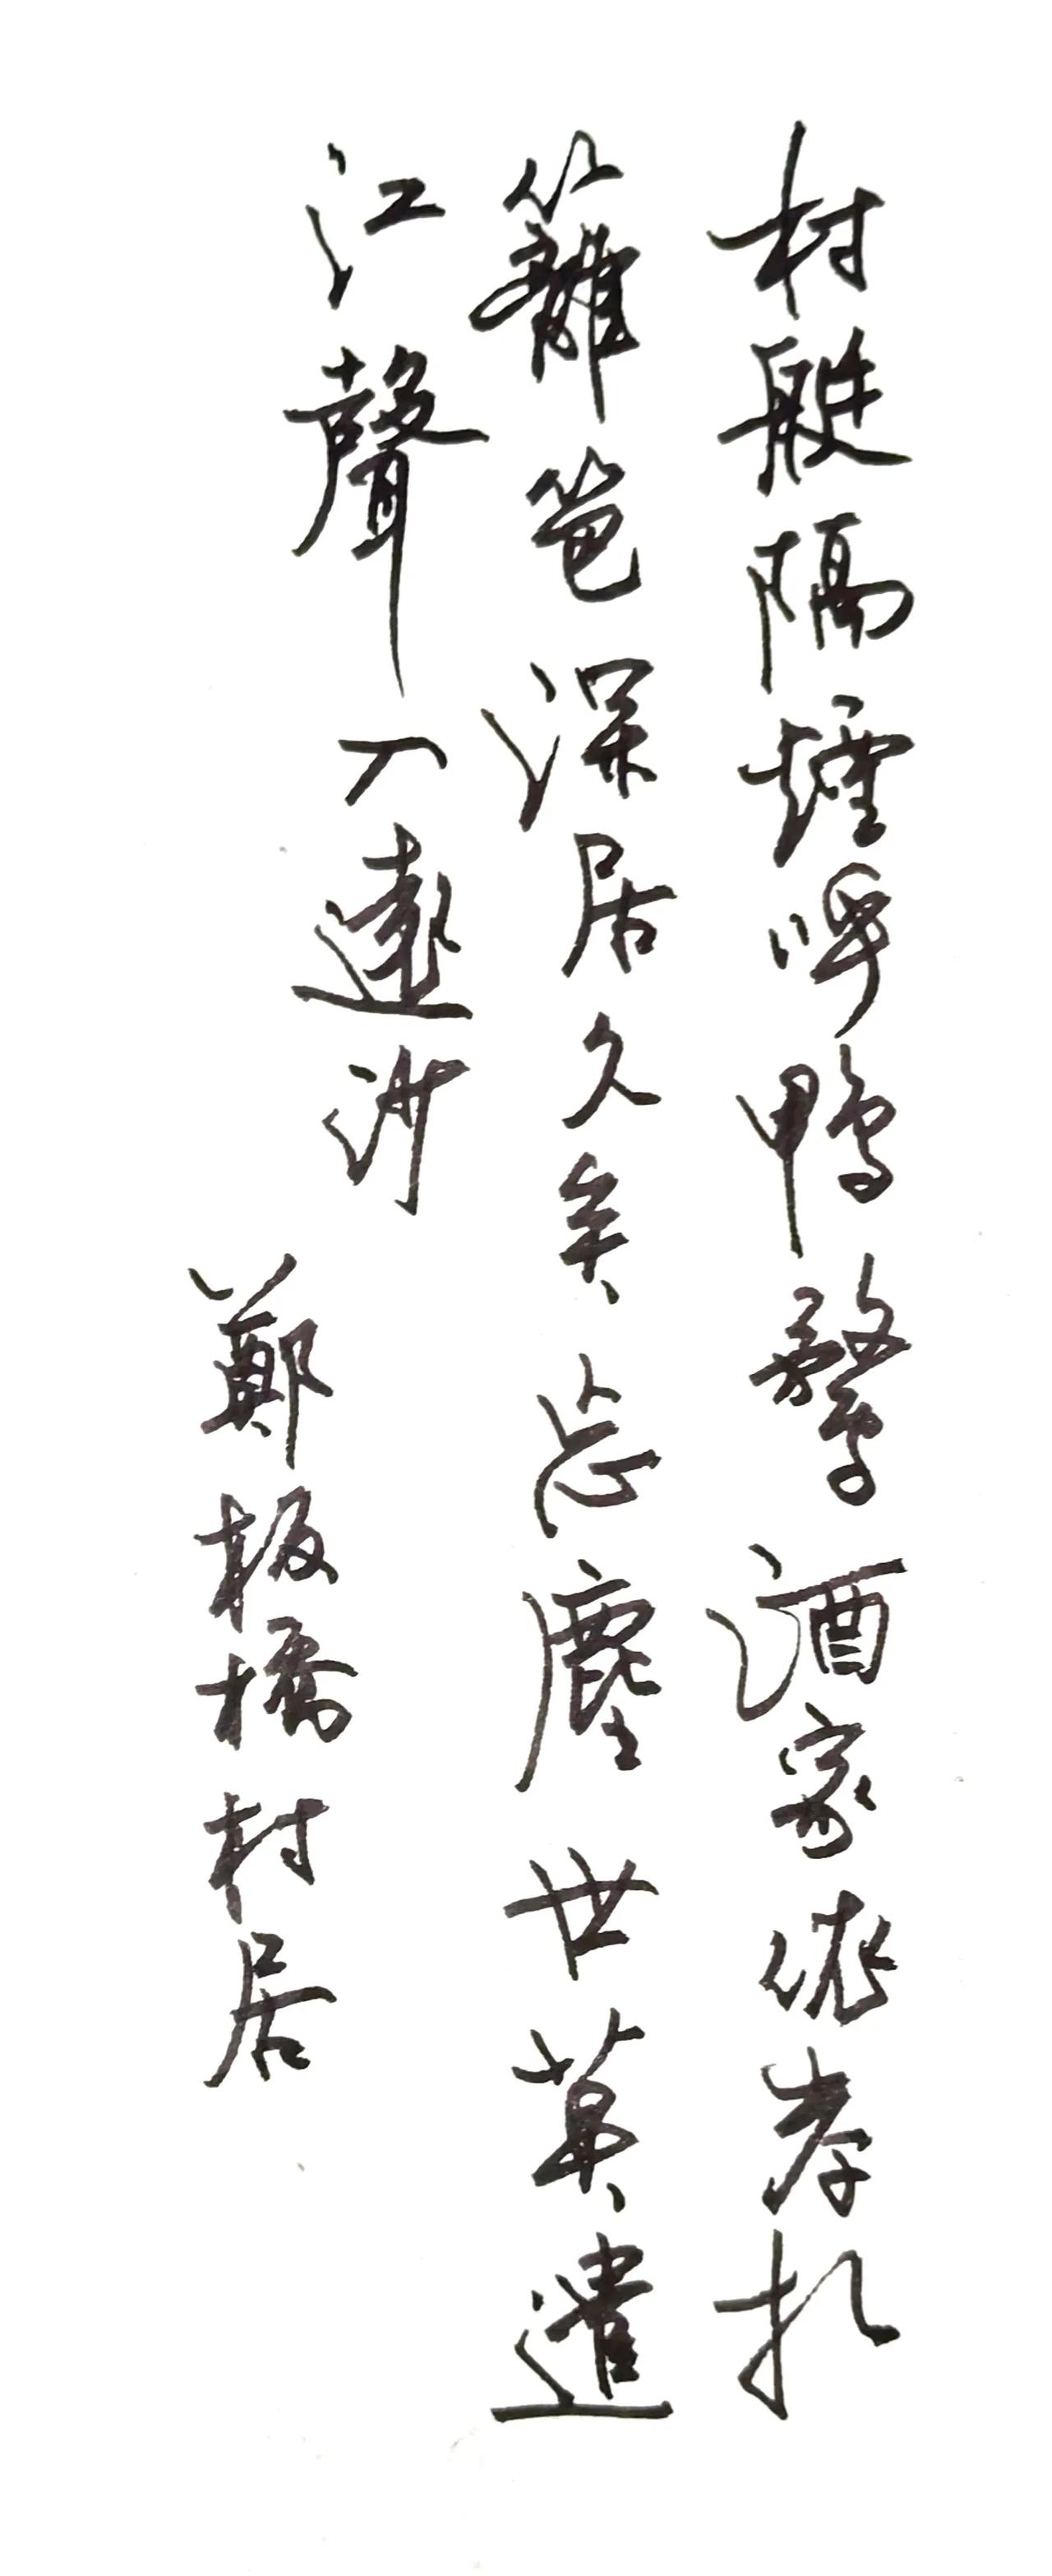 村艇隔煙呼鴨鶩酒家依岸扎
籬笆深居久矣忘塵世莫遣
江聲入遠沙
鄭板橋村居